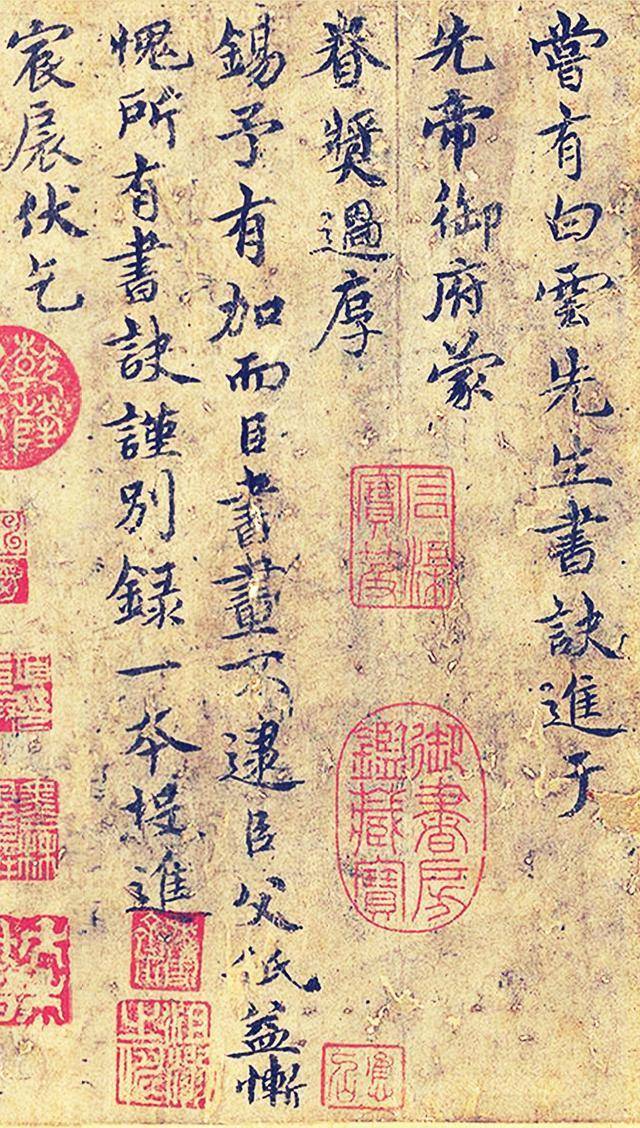 嘗有白雲先生書訣進于
先帝御府蒙
眷奬過厚
錫予有加而臣書畫不逮臣父祇益慚
愧所有書訣謹別録一本投進
宸扆伏乞
石渠
寶笈
御書房
鑑藏寶